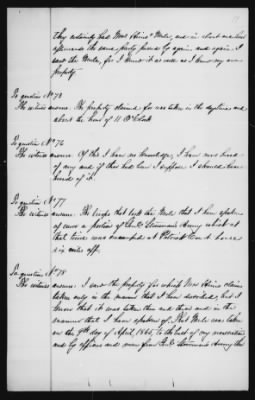 they certainly had Mrs Hines' Mule, and in about one hour
afterwards the same party passed by again and again I
saw the Mule, for I knew it as well as I knew my own
property
To question No 73
The witness answers. The property claimed for was taken in the daytime and
about the hour of 11 O'Clock
To question No 76
The witness answers. Of this I have no knowledge, I have never heard
of any and if there had been I suppose I should have
heard of it.
To question No 77
The witness answers. The troops that took the Mule that I have spoken
of were a portion of Genl Stoneman's Army which at
that time was encamped at
six miles off.
To question No 78
The witness answers: I saw the property for which Mrs Hines claims
taken only in the manner that I have described, but I
know that it was taken then and there and in the
manner that I have spoken of. That Mule was taken
on the 9th day of April, 1865, to the best of my recollection
and by officers and men from Genl Stoneman's Army the